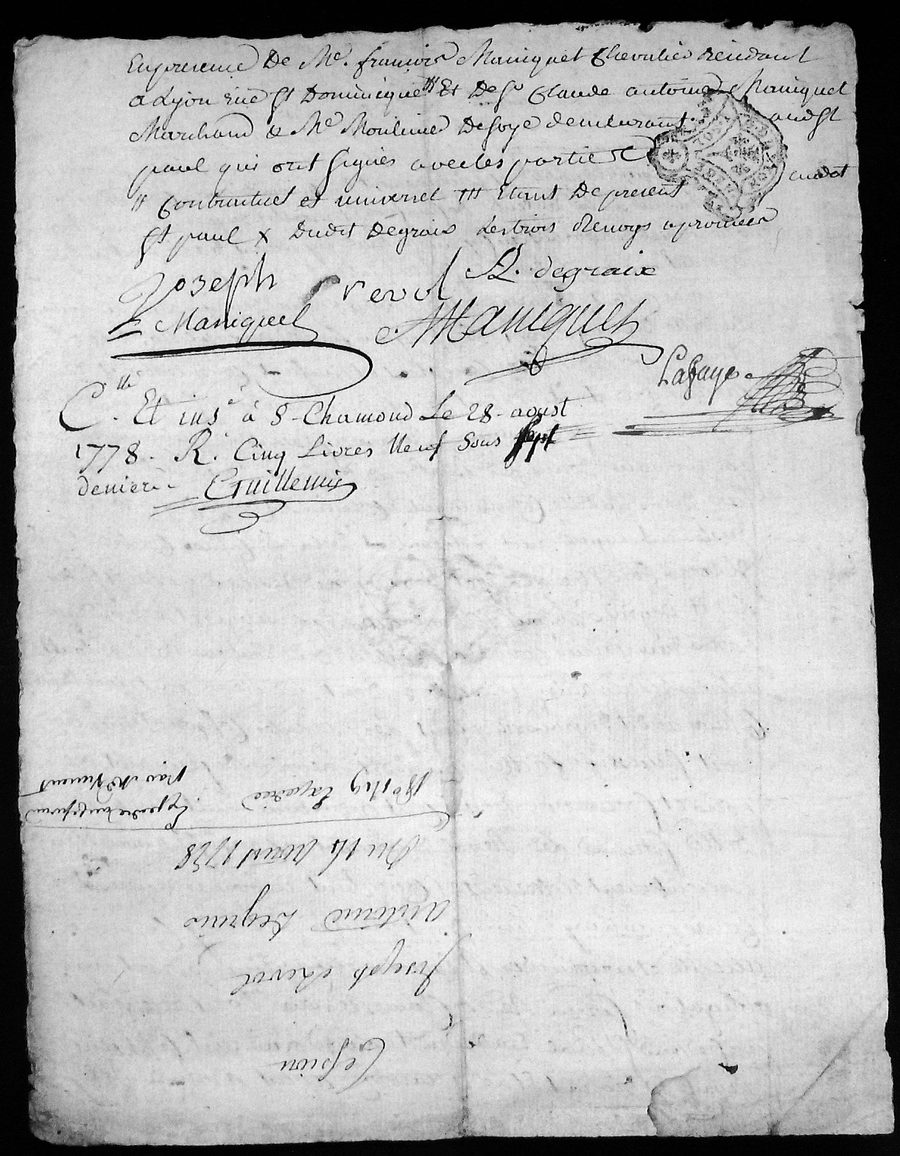 En presence De Me. françois Maniquet Chevalier Residant
a Lyon rue st Dominique Et De sr Claude antoine Maniquet
Marchand & Me Moulinier De soye demeurant audt st
paul qui ont signés avec les parties
Contractuel et universel Etant De present audt
st paul x Dudit Degraix Les trois Renvoys aprouvés
Joseph Crevol A. degraix
Maniquet AManiquet
Lafaye
Clle. Et inse à St. Chamond Le 28. aoust
1778. R. Cinq Livres Neuf Sous Sept
deniers Guillemin
Cession
Joseph
antoine Degraix
Du 14 aoust 1778